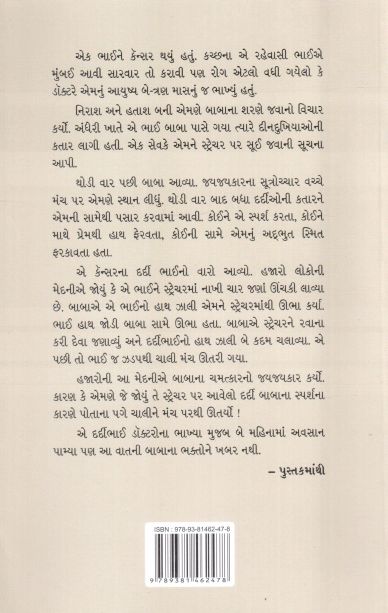 એક ભાઈને કૅન્સર થયું હતું. કચ્છના એ રહેવાસી ભાઈએ
મુંબઈ આવી સારવાર તો કરાવી પણ રોગ એટલો વધી ગયેલો કે
ડૉક્ટરે એમનું આયુષ્ય બે-ત્રણ માસનું જ ભાખ્યું હતું.
નિરાશ અને હતાશ બની એમણે બાબાના શરણે જવાનો વિચાર
કર્યો. અંધેરી ખાતે એ ભાઈ બાબા પાસે ગયા ત્યારે દીનદુખિયાઓની
કતાર લાગી હતી. એક સેવકે એમને સ્ટ્રેચર પર સૂઈ જવાની સૂચના
આપી.
થોડી વાર પછી બાબા આવ્યા. જયજયકારના સૂત્રોચ્ચાર વચ્ચે
મંચ પર એમણે સ્થાન લીધું. થોડી વાર બાદ બધા દર્દીઓની કતારને
એમની સામેથી પસાર કરવામાં આવી. કોઈને એ સ્પર્શ કરતા, કોઈને
માથે પ્રેમથી હાથ ફેરવતા, કોઈની સામે એમનું અદ્ભુત સ્મિત
ફરકાવતા હતા.
એ કૅન્સરના દર્દી ભાઈનો વારો આવ્યો. હજારો લોકોની
મેદનીએ જોયું કે એ ભાઈને સ્ટ્રેચરમાં નાખી ચાર જણાં ઊંચકી લાવ્યા
છે. બાબાએ એ ભાઈનો હાથ ઝાલી એમને સ્ટ્રેચરમાંથી ઊભા કર્યા.
ભાઈ હાથ જોડી બાબા સામે ઊભા હતા. બાબાએ સ્ટ્રેચરને રવાના
કરી દેવા જણાવ્યું અને દર્દીભાઈનો હાથ ઝાલી બે કદમ ચલાવ્યા. એ
પછી તો ભાઈ જ ઝડપથી ચાલી મંચ ઊતરી ગયા.
હજારોની આ મેદનીએ બાબાના ચમત્કારનો જયજયકાર કર્યો.
કારણ કે એમણે જે જોયું તે સ્ટ્રેચર પર આવેલો દર્દી બાબાના સ્પર્શના
કારણે પોતાના પગે ચાલીને મંચ પરથી ઊતર્યો !
એ દર્દીભાઈ ડૉક્ટરોના ભાખ્યા મુજબ બે મહિનામાં અવસાન
પામ્યા પણ આ વાતની બાબાના ભક્તોને ખબર નથી.
– પુસ્તકમાંથી
ISBN : 978-93-81462-47-8
9 789381 462478